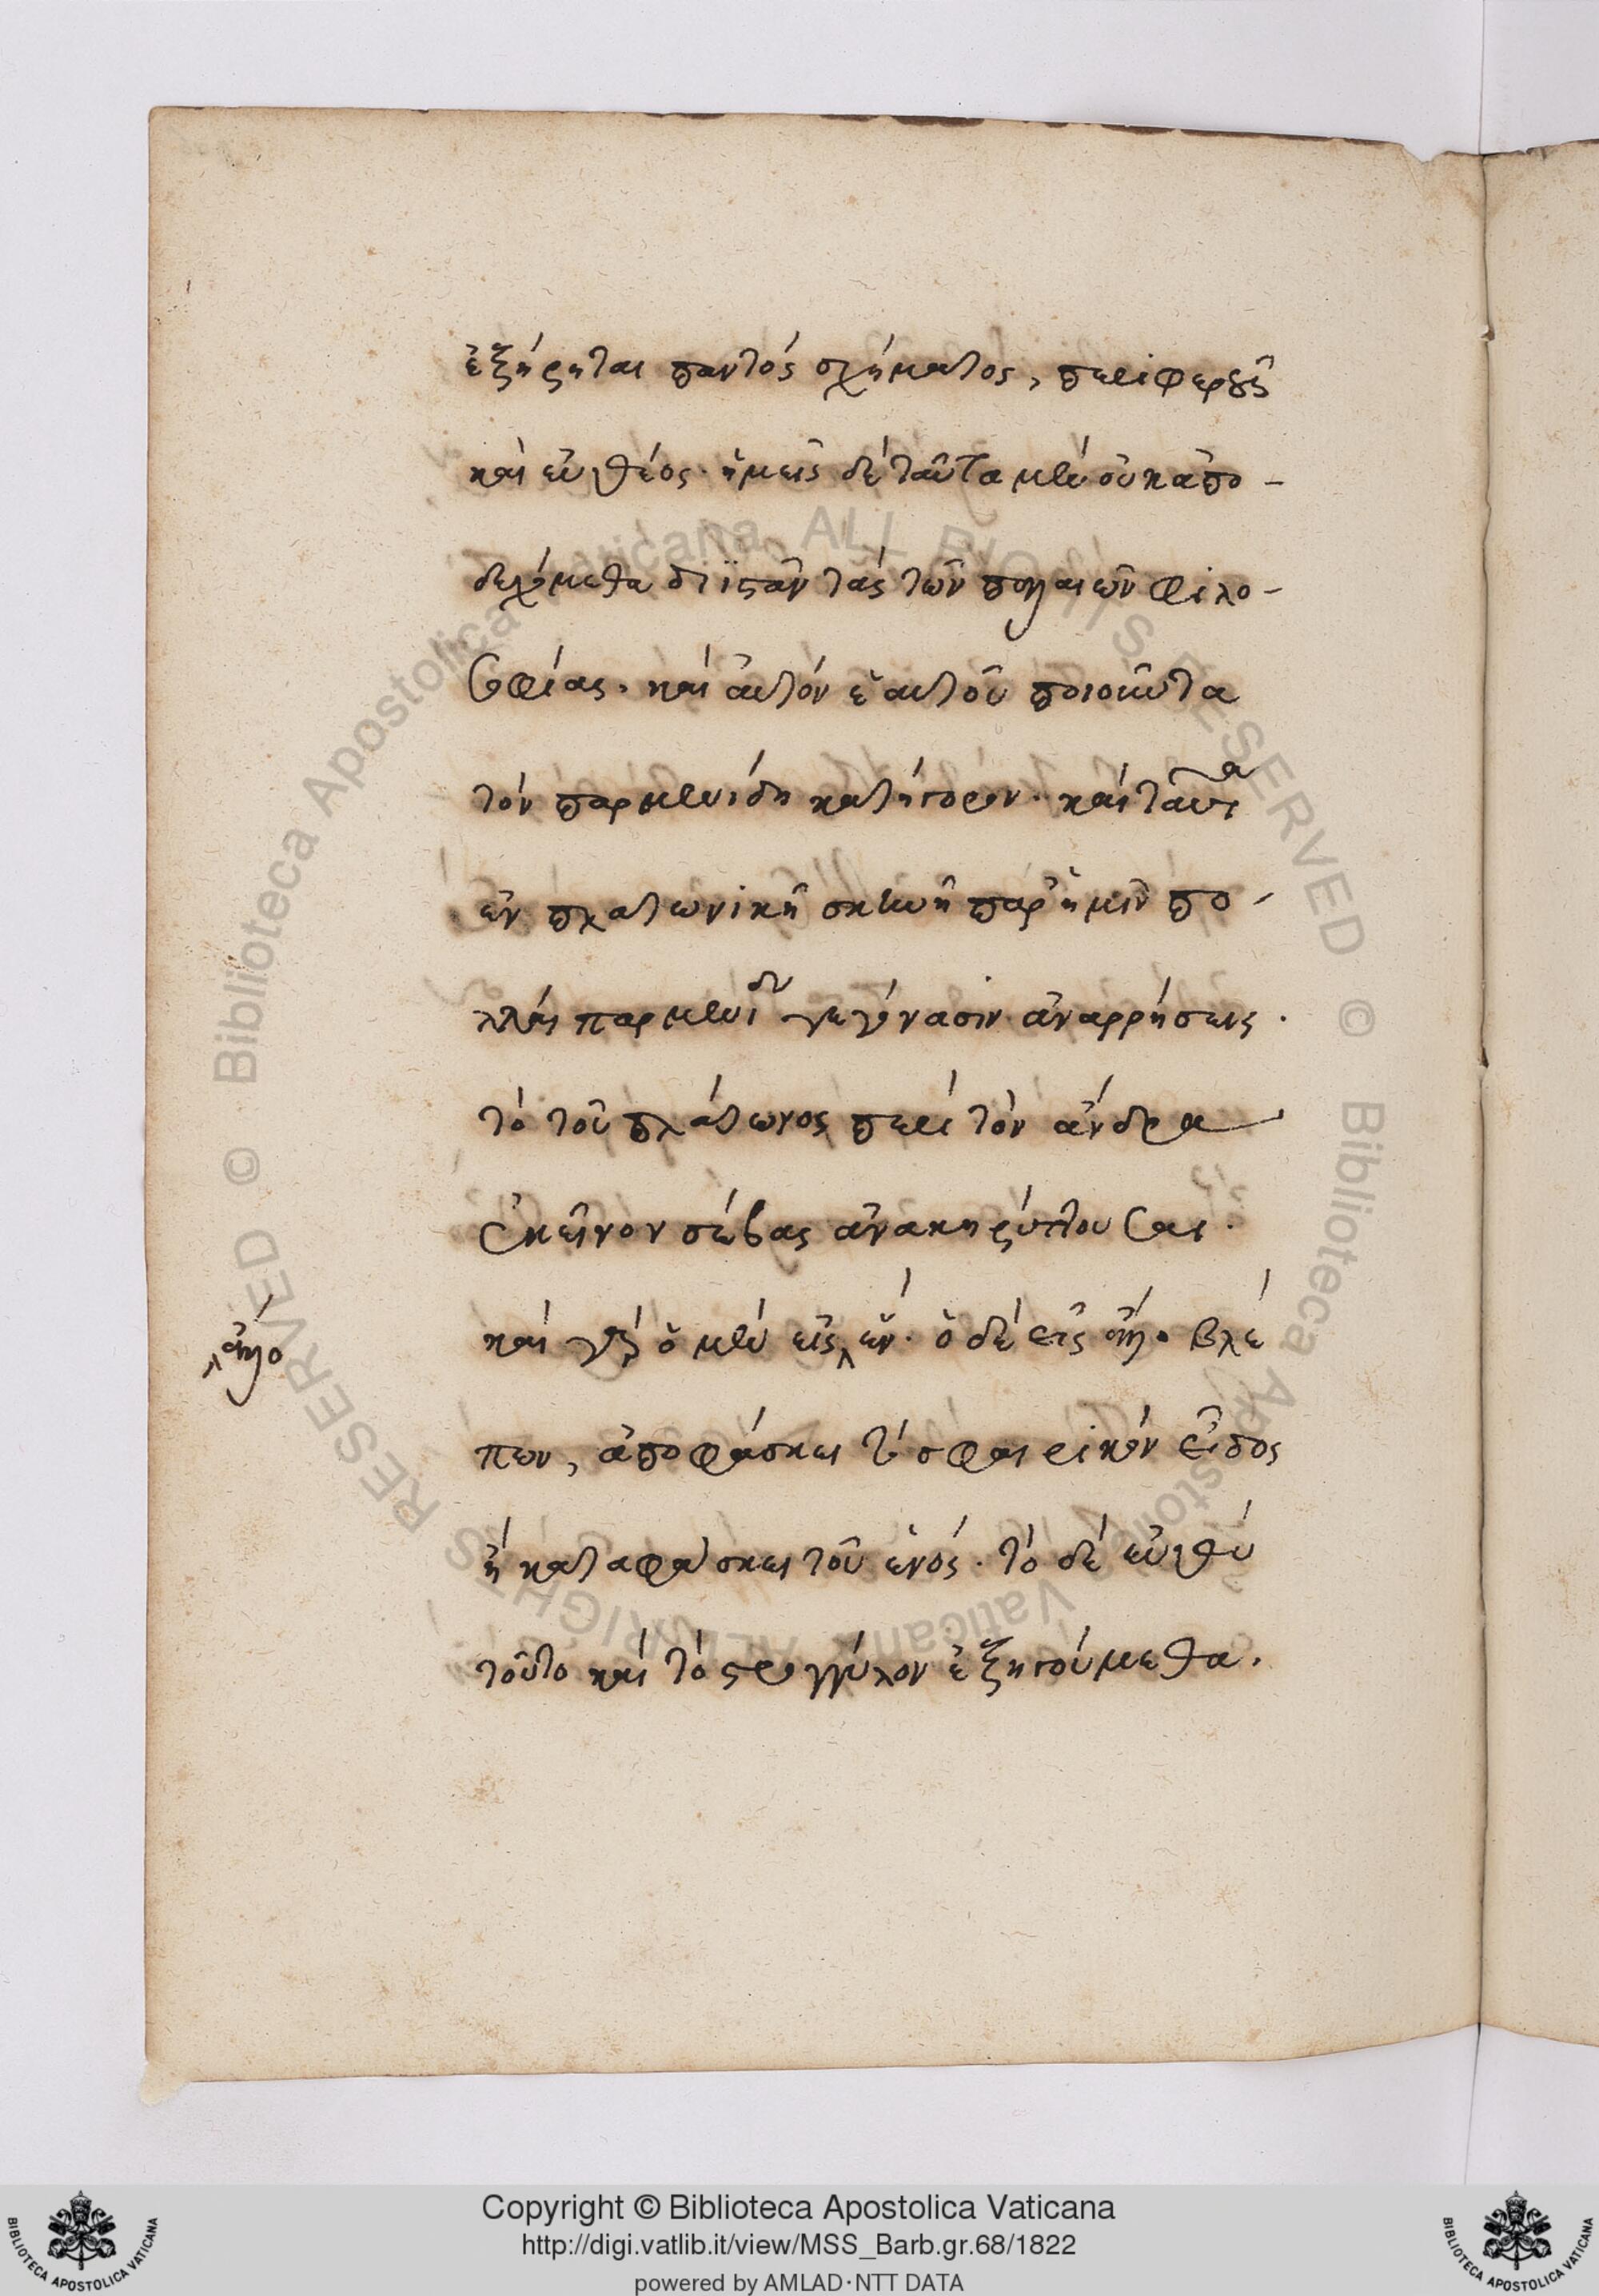 ἐξήρηται παντὸς σχήματος, περιφεροῦς
καὶ εὐθέος· ἡμεῖς δὲ ταῦτα μὲν οὐκ ἀπο-
δεχόμεθα διϊστᾶν τὰς τῶν παλαιῶν φιλο-
σοφίας. καὶ αὐτὸν ἑαυτοῦ ποιοῦντα
τὸν παρμενίδη κατήγορον. καὶ ταῦτα
ἐν πλατωνικῇ σκηνῇ παρ' ἡμῖν πο-
λλαὶ παρμενίδου γεγόνασιν ἀναρρήσεις.
τὸ τοῦ πλάτωνος περὶ τὸν ἄνδρα
ἐκεῖνον σέβας ἀνακηρύττουσαι.
καὶ γὰρ ὁ μὲν εἰς ἕν· ὁ δὲ εἰς ἄλλο βλέ
ἄλλο
πων, ἀποφάσκει τὸ σφαιρικὸν εἶδος
ἢ καταφάσκει τοῦ ἑνός. τὸ δὲ εὐθὺ
τοῦτο καὶ τὸ στρογγύλον ἐξηγούμεθα.
Copyright © Biblioteca Apostolica Vaticana
http://digi.vatlib.it/view/MSS_Barb.gr.68/1822
powered by AMLAD·NTT DATA
BIBLIOTECA APOSTOLICA VATICANA
BIBLIOTECA APOSTOLICA VATICANA
© Biblioteca Apostolica Vaticana ALL RIGHTS RESERVED
© Biblioteca Apostolica Vaticana ALL RIGHTS RESERVED